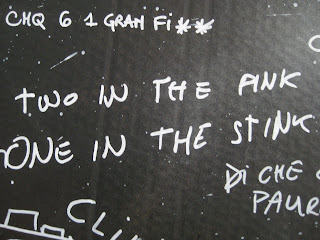 CMQ 6 1 GRAN FI**
TWO IN THE PINK
ONE IN THE STINK
DI CHE
PAUR
CLI